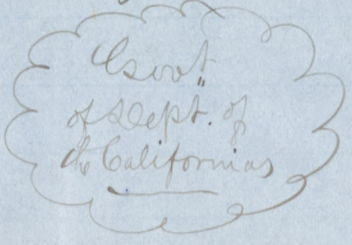 Govt
of Dept. of
the Californias